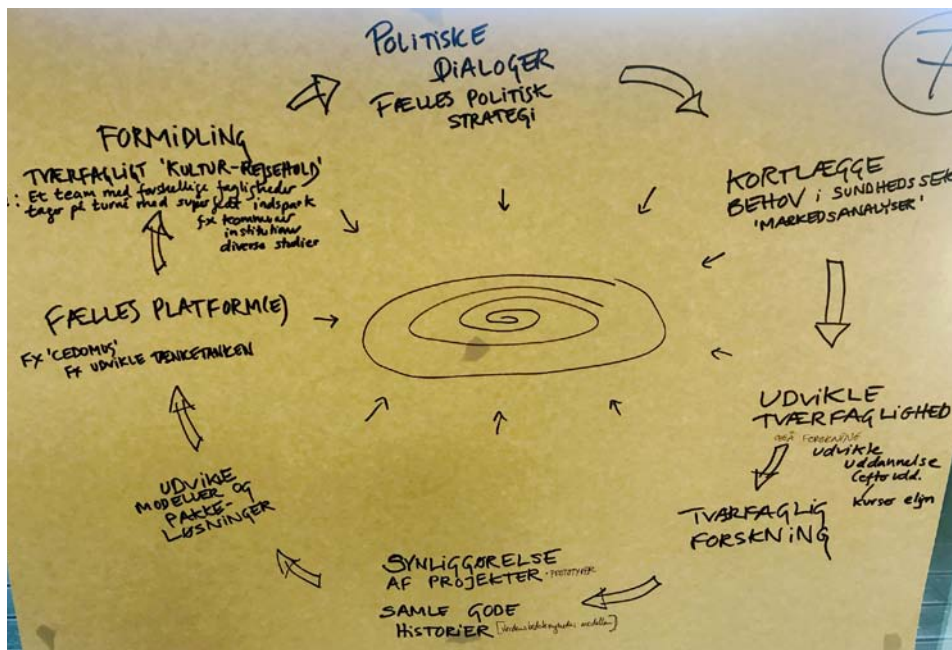 POLITISKE
DIALOGER
FÆLLES POLITISK
STRATEGI
7
KORTLÆGGE
BEHOV I SUNDHEDSSEK
'MARKEDSANALYSER'
UDVIKLE
TVÆRFAGLIGHED
udvikle
uddannelse
(efterudd.
kurser elign
TVÆRFAGLIG
FORSKNING
SYNLIGGØRELSE
AF PROJEKTER - PROTOTYPER
SAMLE GODE
HISTORIER
UDVIKLE
MODELLER OG
PAKKE-
LØSNINGER
FÆLLES PLATFORM(E)
FX 'CEDOMUS'
FX UDVIKLE TÆNKETANKEN
FORMIDLING
TVÆRFAGLIGT 'KULTUR-REJSEHOLD'
: Et team med forskellige fagligheder
tager på turné med superfedt indspark
fx kommuner
institutioner
diverse studier